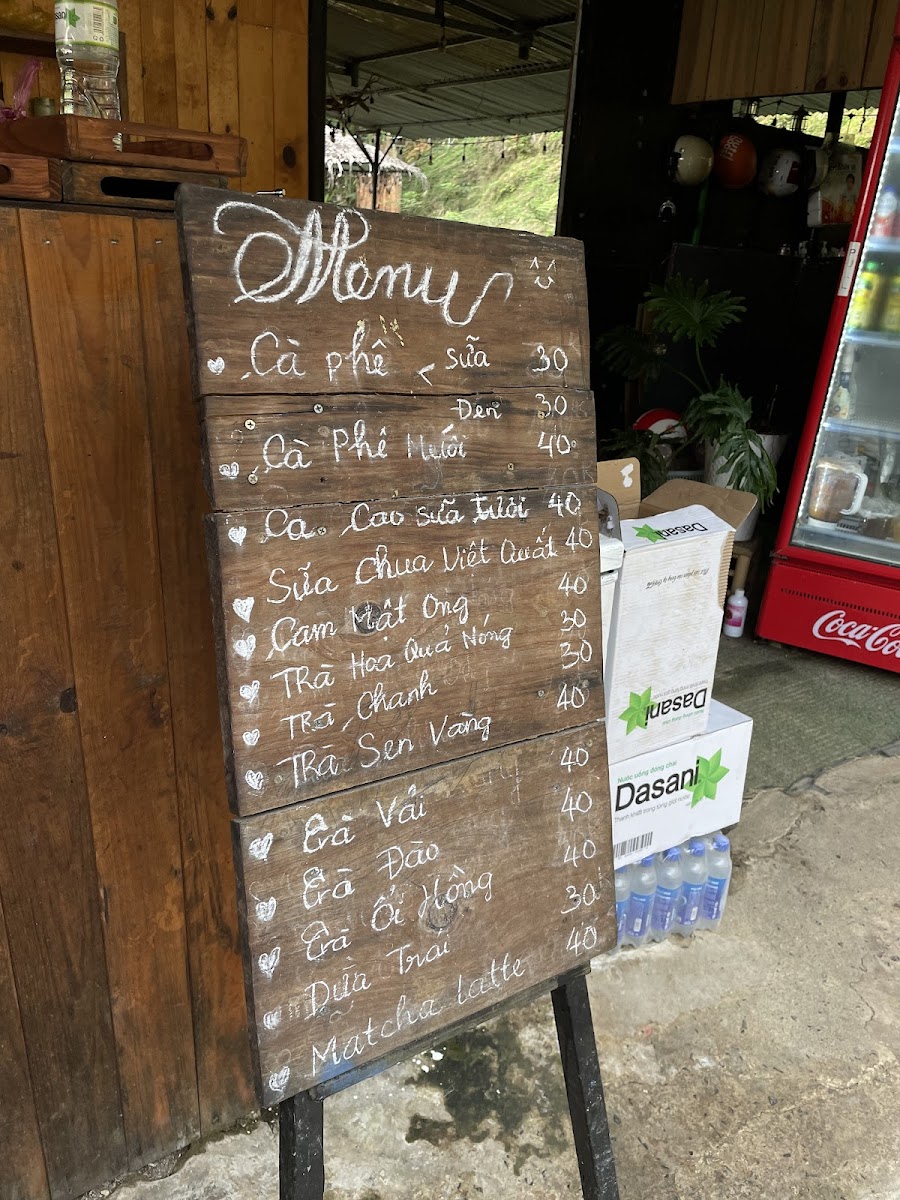 Dasani
Menu
Cà phê < sữa 30
Đen 30
Cà Phê Muối 40
Ca Cao sữa tươi 40
Sữa Chua Việt Quất 40
Cam Mật Ong 40
TRà Hoa Quả Nóng 30
TRà Chanh 30
TRà Sen Vàng 40
Trà Vải 40
Trà Đào 40
Trà Ổi Hồng 40
Dừa Trái 30
Matcha Latte 40
Dasani
Dasani
Nước uống đóng chai
Dasani
Thanh khiết trong từng giọt nước
Coca-Co